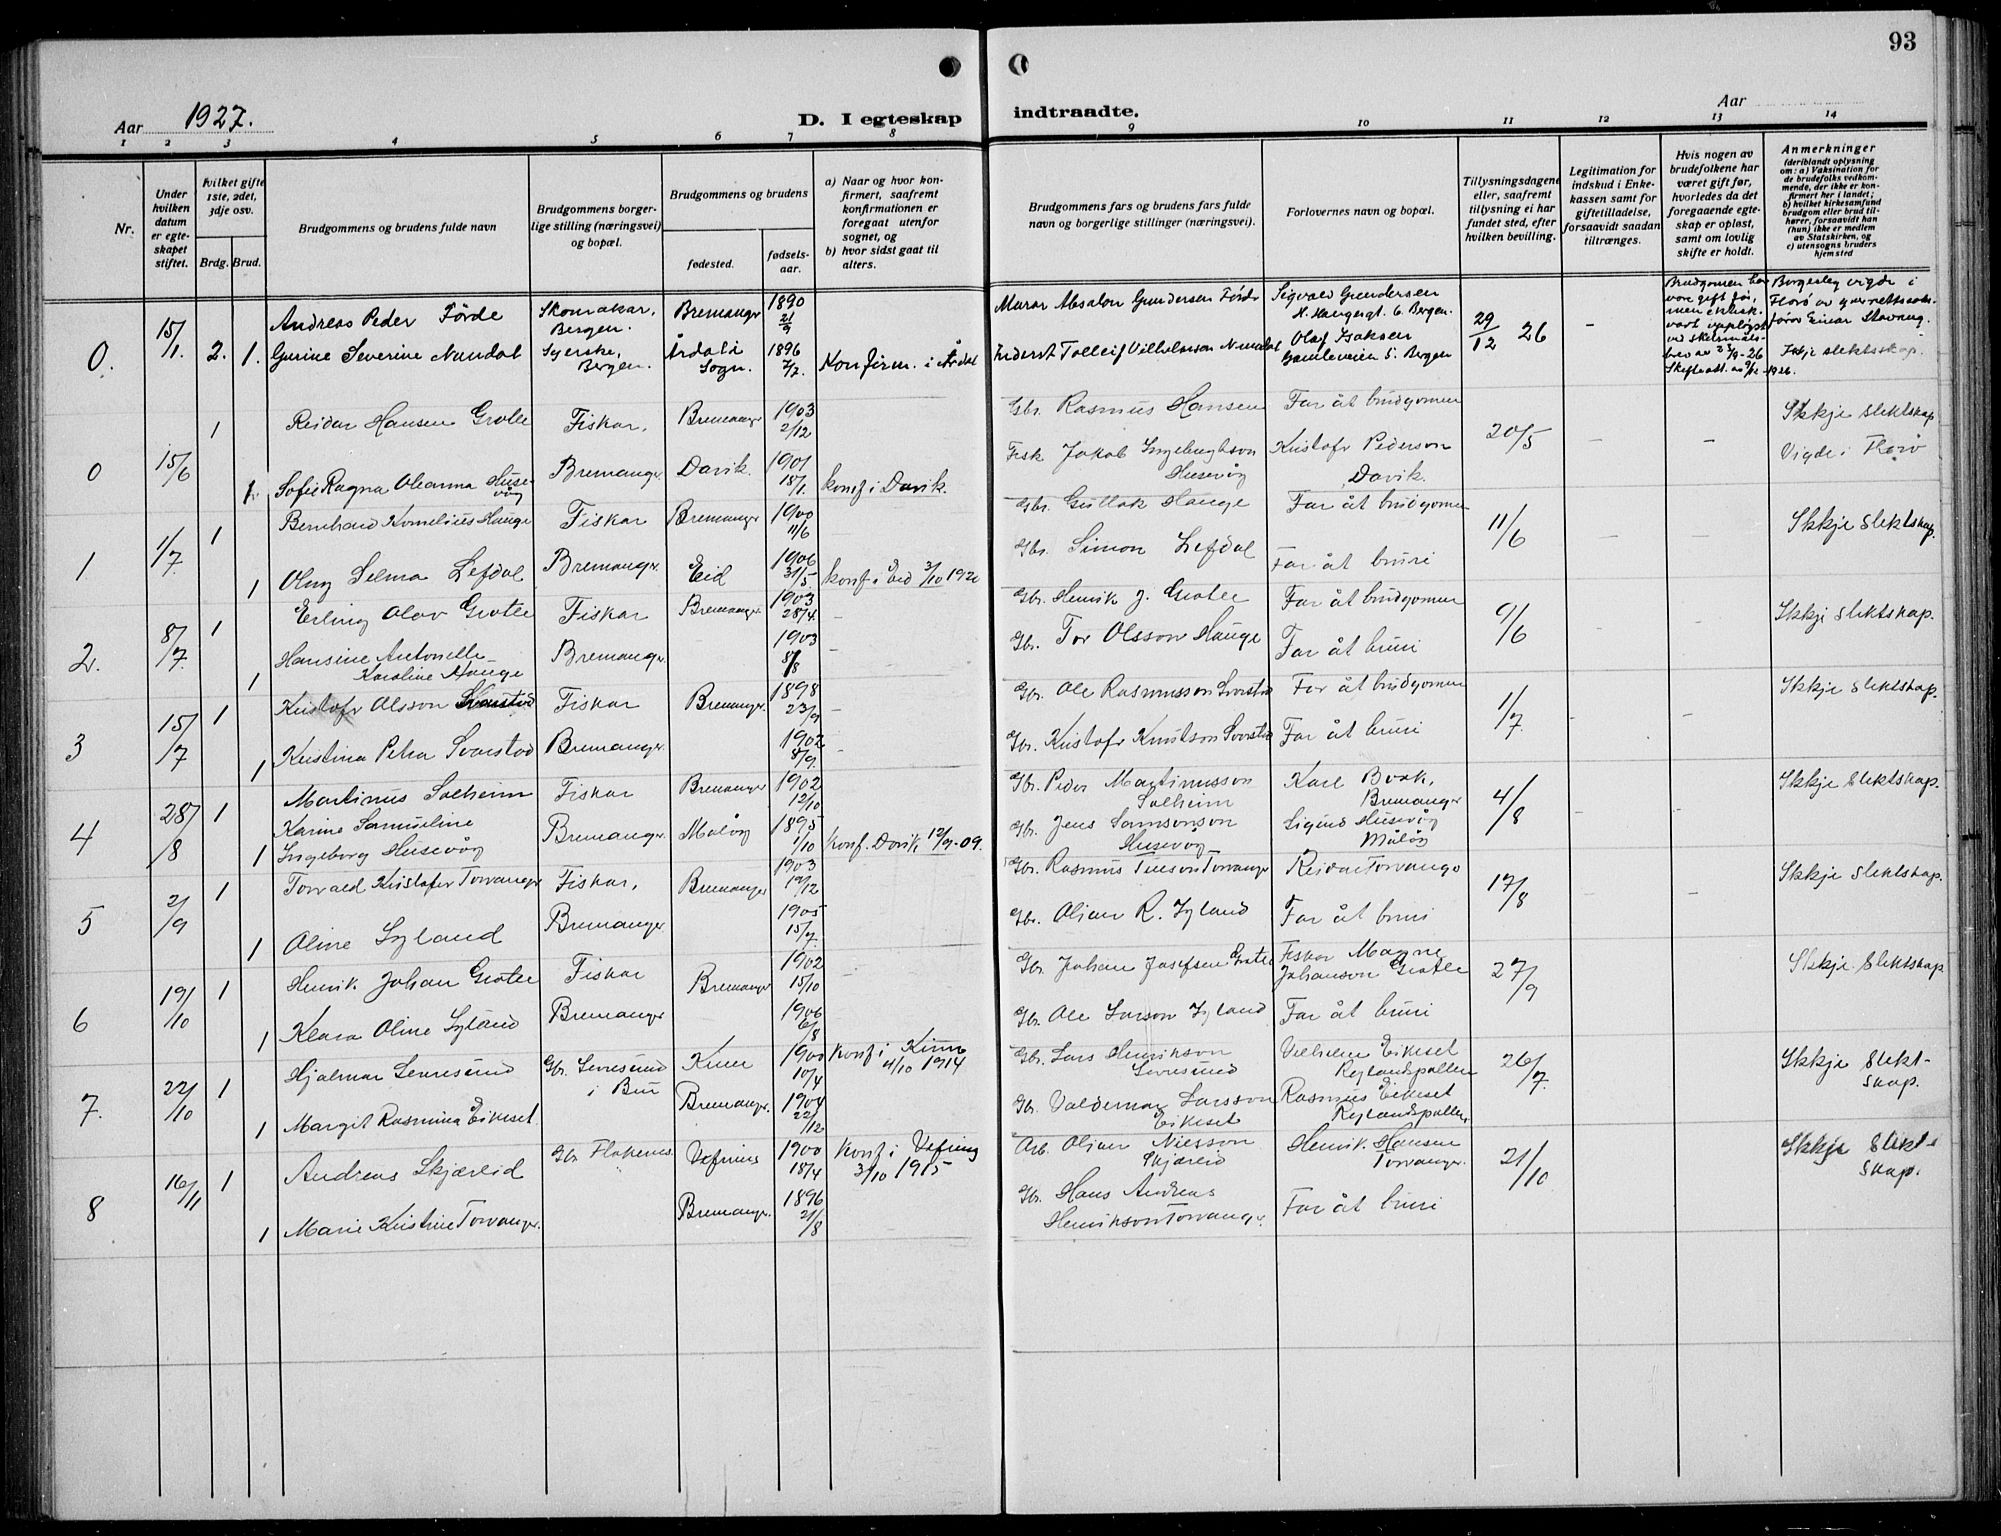 93
Aar 1927.
D. I egteskap
indtraadte.
Aar
1 2 3 4 5 6 7 8 9 10 11 12 13 14
Nr.
Under hvilken datum er egteskapet stiftet.
hvilket gifte 1ste, 2det, 3dje osv.
Brdg. Brud.
Brudgommens og brudens fulde navn
Brudgommens borgerlige stilling (næringsvei) og bopæl.
Brudgommens og brudens
fødested.
fødselsaar.
a) Naar og hvor konfirmert, saafremt konfirmationen er foregaat utenfor sognet, og
b) hvor sidst gaat til alters.
Brudgommens fars og brudens fars fulde navn og borgerlige stillinger (næringsvei).
Forlovernes navn og bopæl.
Tillysningsdagene eller, saafremt tillysning ei har fundet sted, efter hvilken bevilling.
Legitimation for indskud i Enkekassen samt for giftetilladelse, forsaavidt saadan tiltrænges.
Hvis nogen av brudefolkene har været gift før, hvorledes da det foregaaende egteskap er opløst, samt om lovlig skifte er holdt.
Anmerkninger
(deriblandt oplysning om: a) Vaksination for de brudefolks vedkommende, der ikke er konfirmert her i landet; b) hvilket kirkesamfund brudgom eller brud tilhører, forsaavidt han (hun) ikke er medlem av Statskirken, og c) utensogns bruders hjemsted
0. 15/1. 2. Andreas Peder Förde Skomakar, Bergen. Bremanger 1890 21/9
1. Gurine Severine Nundal Syerske, Bergen. Årdal i Sogn. 1896 2/7. Konfirm. i Årdal
Murar Absalon Gundersen Förde Sigvald Gundersen Bergen. 29/12 26 -
Tolleif Vilhelmson Nundal Olaf Isaksen Bergen
Brudgomen har vore gift før, 9-26
Borgerleg vigde i Florø av Einar Stavang.
Ikkje slektskap.
0 15/6 1 Reidar Hansen Grotle Fiskar, Bremanger 1903 2/12
1. Sofie Ragna Oleanna Husevåg Bremanger Davik. 1901 18/1. konf i Davik.
Gbr. Rasmus Hansen Far åt brudgomen 20/5 - -
Fisk Jakob Ingebrigtson Husevåg Kristofr Pederson Davik.
Ikkje slektskap
Vigde i Florø
1 1/7. 1 Bernhard Kornelius Hauge Fiskar Bremanger 1900 11/6 -
1 Olny Selma Lefdal Bremanger. Eid 1906 31/5. konf i Eid 3/10 1920
Gbr. Gullak Hauge Far åt brudgomen 11/6 - -
Gbr. Simon Lefdal Far åt bruri
Ikkje slektskap.
2. 8/7. 1 Erling Olav Grotle Fiskar Bremanger. 1903 28/4. -
1 Hansine Antonelle Karoline Hauge Bremanger. 1903 8/8 -
Gbr. Henrik J. Grotle Far åt brudgomen 9/6 - -
Gbr. Tor Olsson Hauge Far åt bruri
Ikkje slektskap.
3 15/7 1 Kristofr Olsson Svarstad Fiskar Bremanger. 1898 23/9 -
1 Kristina Petra Svarstad Bremanger. 1902 8/9. -
Gbr. Ole Rasmusson Svarstad Far åt brudgomen 1/7. - -
Gbr. Kristofr Knutson Svarstad Far åt bruri
Ikkje slektskap.
4 28/8 1 Martinus Solheim Fiskar Bremanger 1902 12/10
1 Karine Samueline Ingeborg Husevåg Bremanger. Måløy 1895 1/10 konf. Davik 12/9-09.
Gbr. Peder Martinusson Solheim Karl Bakk, Bremanger 4/8 - -
Gbr. Jens Samsonson Husevåg Sigurd Husevåg Måløy
Ikkje slektskap.
5 2/9 1 Torvald Kristofer Torvanger Fiskar, Bremanger 1903 19/12
1 Oline Igland Bremanger 1905 15/7.
Gbr. Rasmus Torvanger Reidar Torvanger 17/8 - -
Gbr. Oljan R. Igland Far åt bruri
Ikkje slektskap.
6 19/10 1 Henrik Johan Grotle Fiskar Bremanger 1902 15/10 -
1 Klara Oline Igland Bremanger 1906 6/8
Gbr. Johan Josefsen Grotle Fiskar Magne Johanson Grotle 27/9
Gbr. Ole Larson Igland Far åt bruri
Ikkje slektskap
7. 22/10 1 Hjalmar Søresund Gbr. Søresund i Bru Kinn 1900 10/4 konf i Kinn 4/10 1914
1 Margit Rasmina Eikeset Bremanger. 1904 22/12
Gbr. Lars Henrikson Søresund Vilhelm Eikeset Rylandspollen 26/7.
Gbr. Valdemar Larsson Eikeset Rasmus Eikeset Rylandspollen
Ikkje slektskap.
8 16/11 1 Andreas Skjærlid Gbr Flokenes Vefring 1900 18/4 konf i Vefring 3/10 1915
1 Marie Kristine Torvanger. Bremanger. 1896 21/8
Arb. Oljan Nilsson Skjærlid Henrik Hansen Torvanger. 21/10
Gbr. Hans Andreas Henrikson Torvanger. Far åt bruri
Ikkje slektskap.